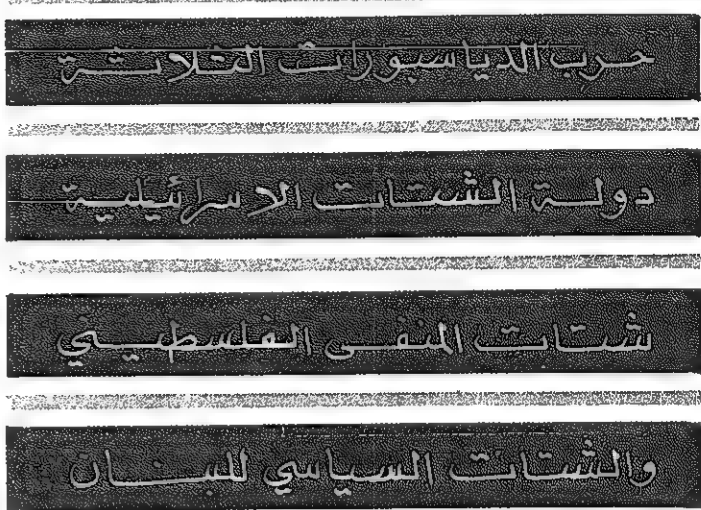 حرب الدياسبورات الثلاثة
دولة الشتات الاسرائيلية
شتات المنفى الفلسطيني
والشتات السياسي للبنان